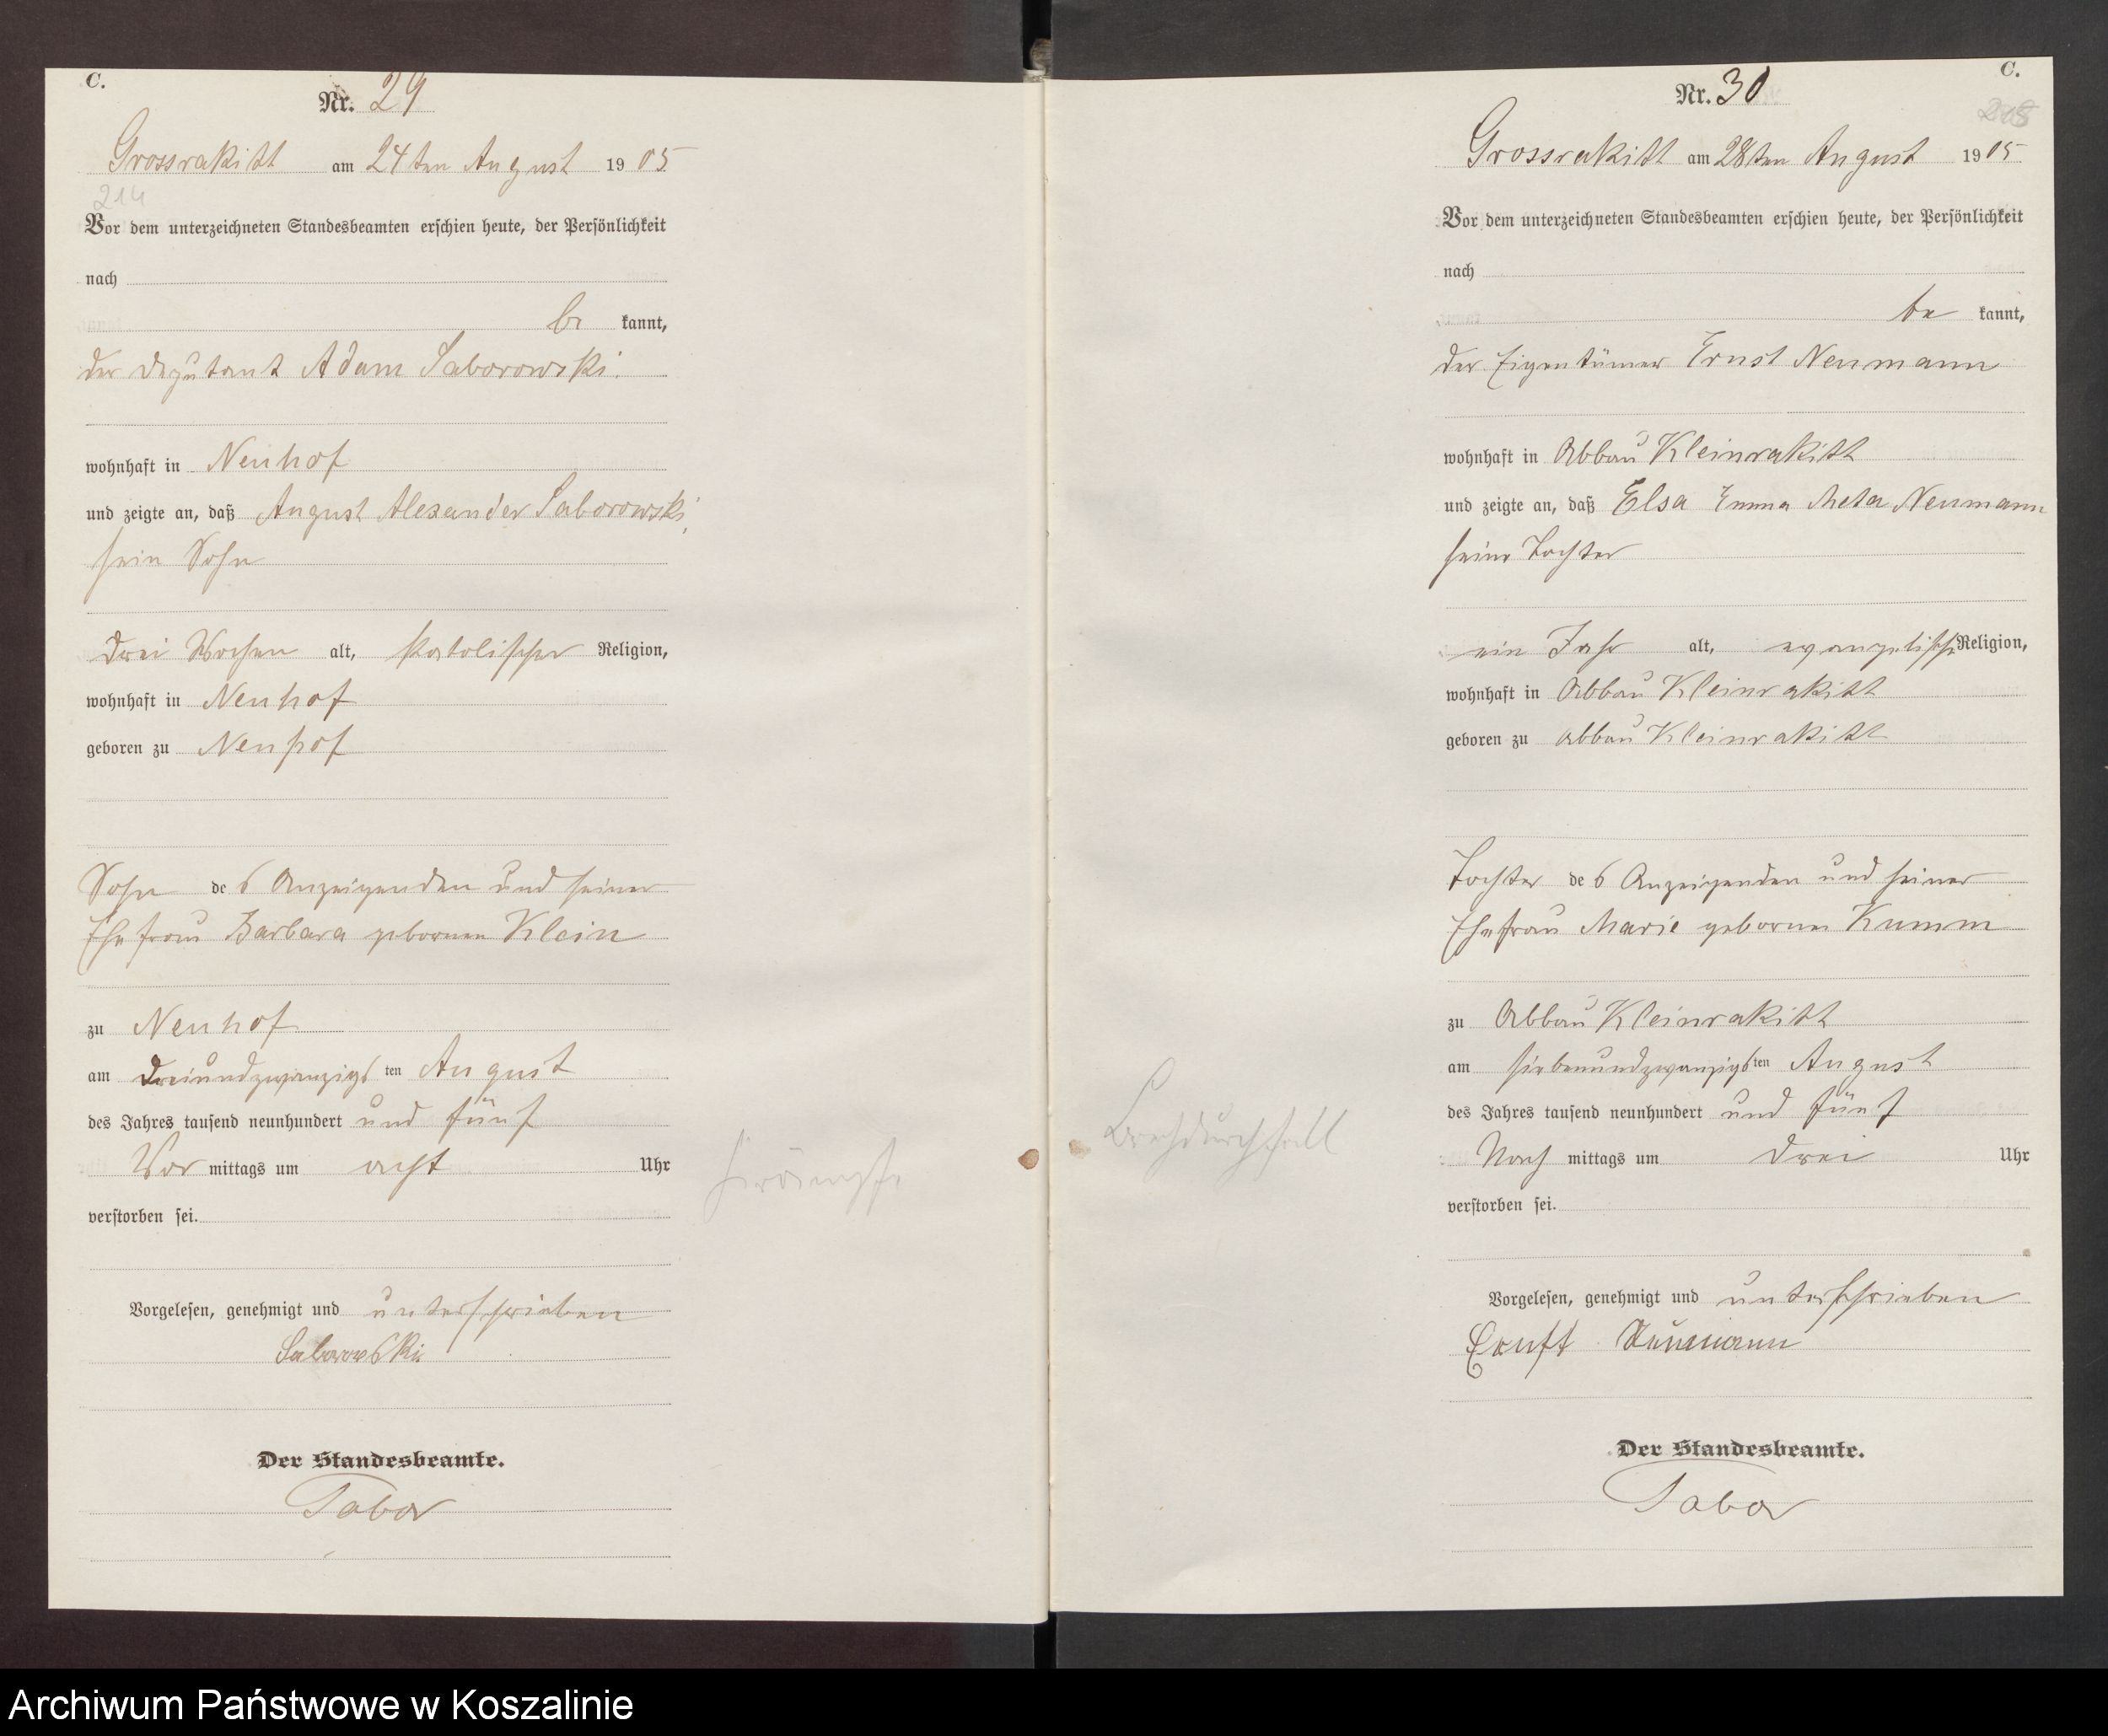 C.
Nr. 29
Grossrakitt am 24ten August 1905
214
Vor dem unterzeichneten Standesbeamten erschien heute, der Persönlichkeit
nach
be kannt,
der Deputant Adam Saborowski.
wohnhaft in Neuhof
und zeigte an, daß August Alexander Saborowski,
sein Sohn
drei Wochen alt, katolischer Religion,
wohnhaft in Neuhof
geboren zu Neuhof
Sohn des Anzeigenden und seiner
Ehefrau Barbara geborenen Klein
zu Neuhof
am dreiundzwanzigsten August
des Jahres tausend neunhundert und fünf
Vor mittags um acht Uhr
verstorben sei.
Krämpfe
Vorgelesen, genehmigt und unterschrieben
Saborowski
Der Standesbeamte.
Tabor
C.
Nr. 30
Grossrakitt am 28ten August 1905
Vor dem unterzeichneten Standesbeamten erschien heute, der Persönlichkeit
nach
be kannt,
der Eigentümer Ernst Neumann
wohnhaft in Abbau Kleinrakitt
und zeigte an, daß Elsa Emma Meta Neumann
seine Tochter
ein Jahr alt, evangelischer Religion,
wohnhaft in Abbau Kleinrakitt
geboren zu Abbau Kleinrakitt
Tochter des Anzeigenden und seiner
Ehefrau Marie geborenen Kumm
zu Abbau Kleinrakitt
am siebenundzwanzigsten August
des Jahres tausend neunhundert und fünf
Brechdurchfall
Nach mittags um drei Uhr
verstorben sei.
Vorgelesen, genehmigt und unterschrieben
Ernst Neumann
Der Standesbeamte.
Tabor
Archiwum Państwowe w Koszalinie